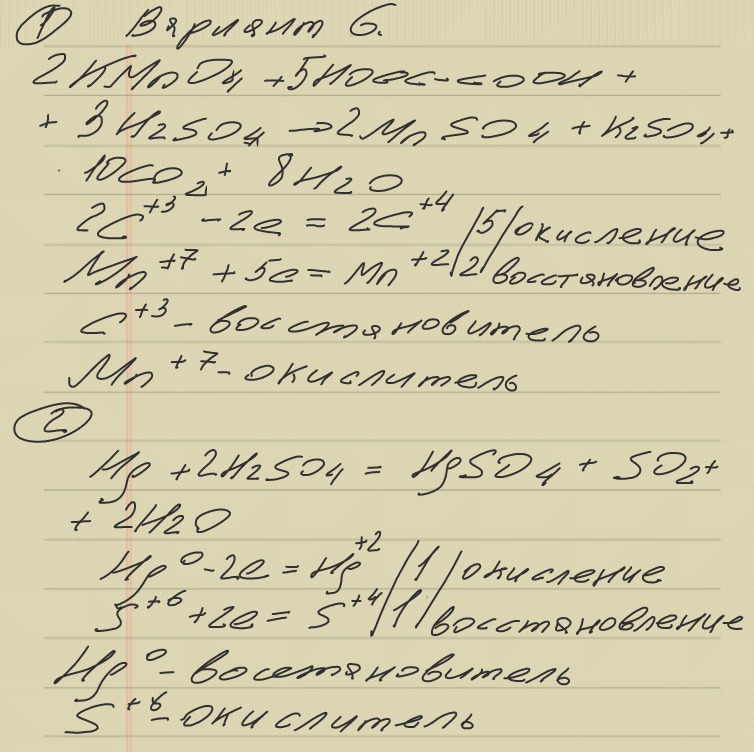 ① Вариант 6.
2KMnO4 + 5HOOC-COOH +
+ 3H2SO4 → 2MnSO4 + K2SO4+
10CO2 + 8H2O
2C+3 - 2e = 2C+4 / 5 / окисление
Mn+7 + 5e = Mn+2 / 2 / восстановление
C+3 - восстановитель
Mn+7 - окислитель
②
Hg + 2H2SO4 = HgSO4 + SO2+
+ 2H2O
Hg0 - 2e = Hg+2 / 1 / окисление
S+6 + 2e = S+4 / 1 / восстановление
Hg0 - восстановитель
S+6 - окислитель